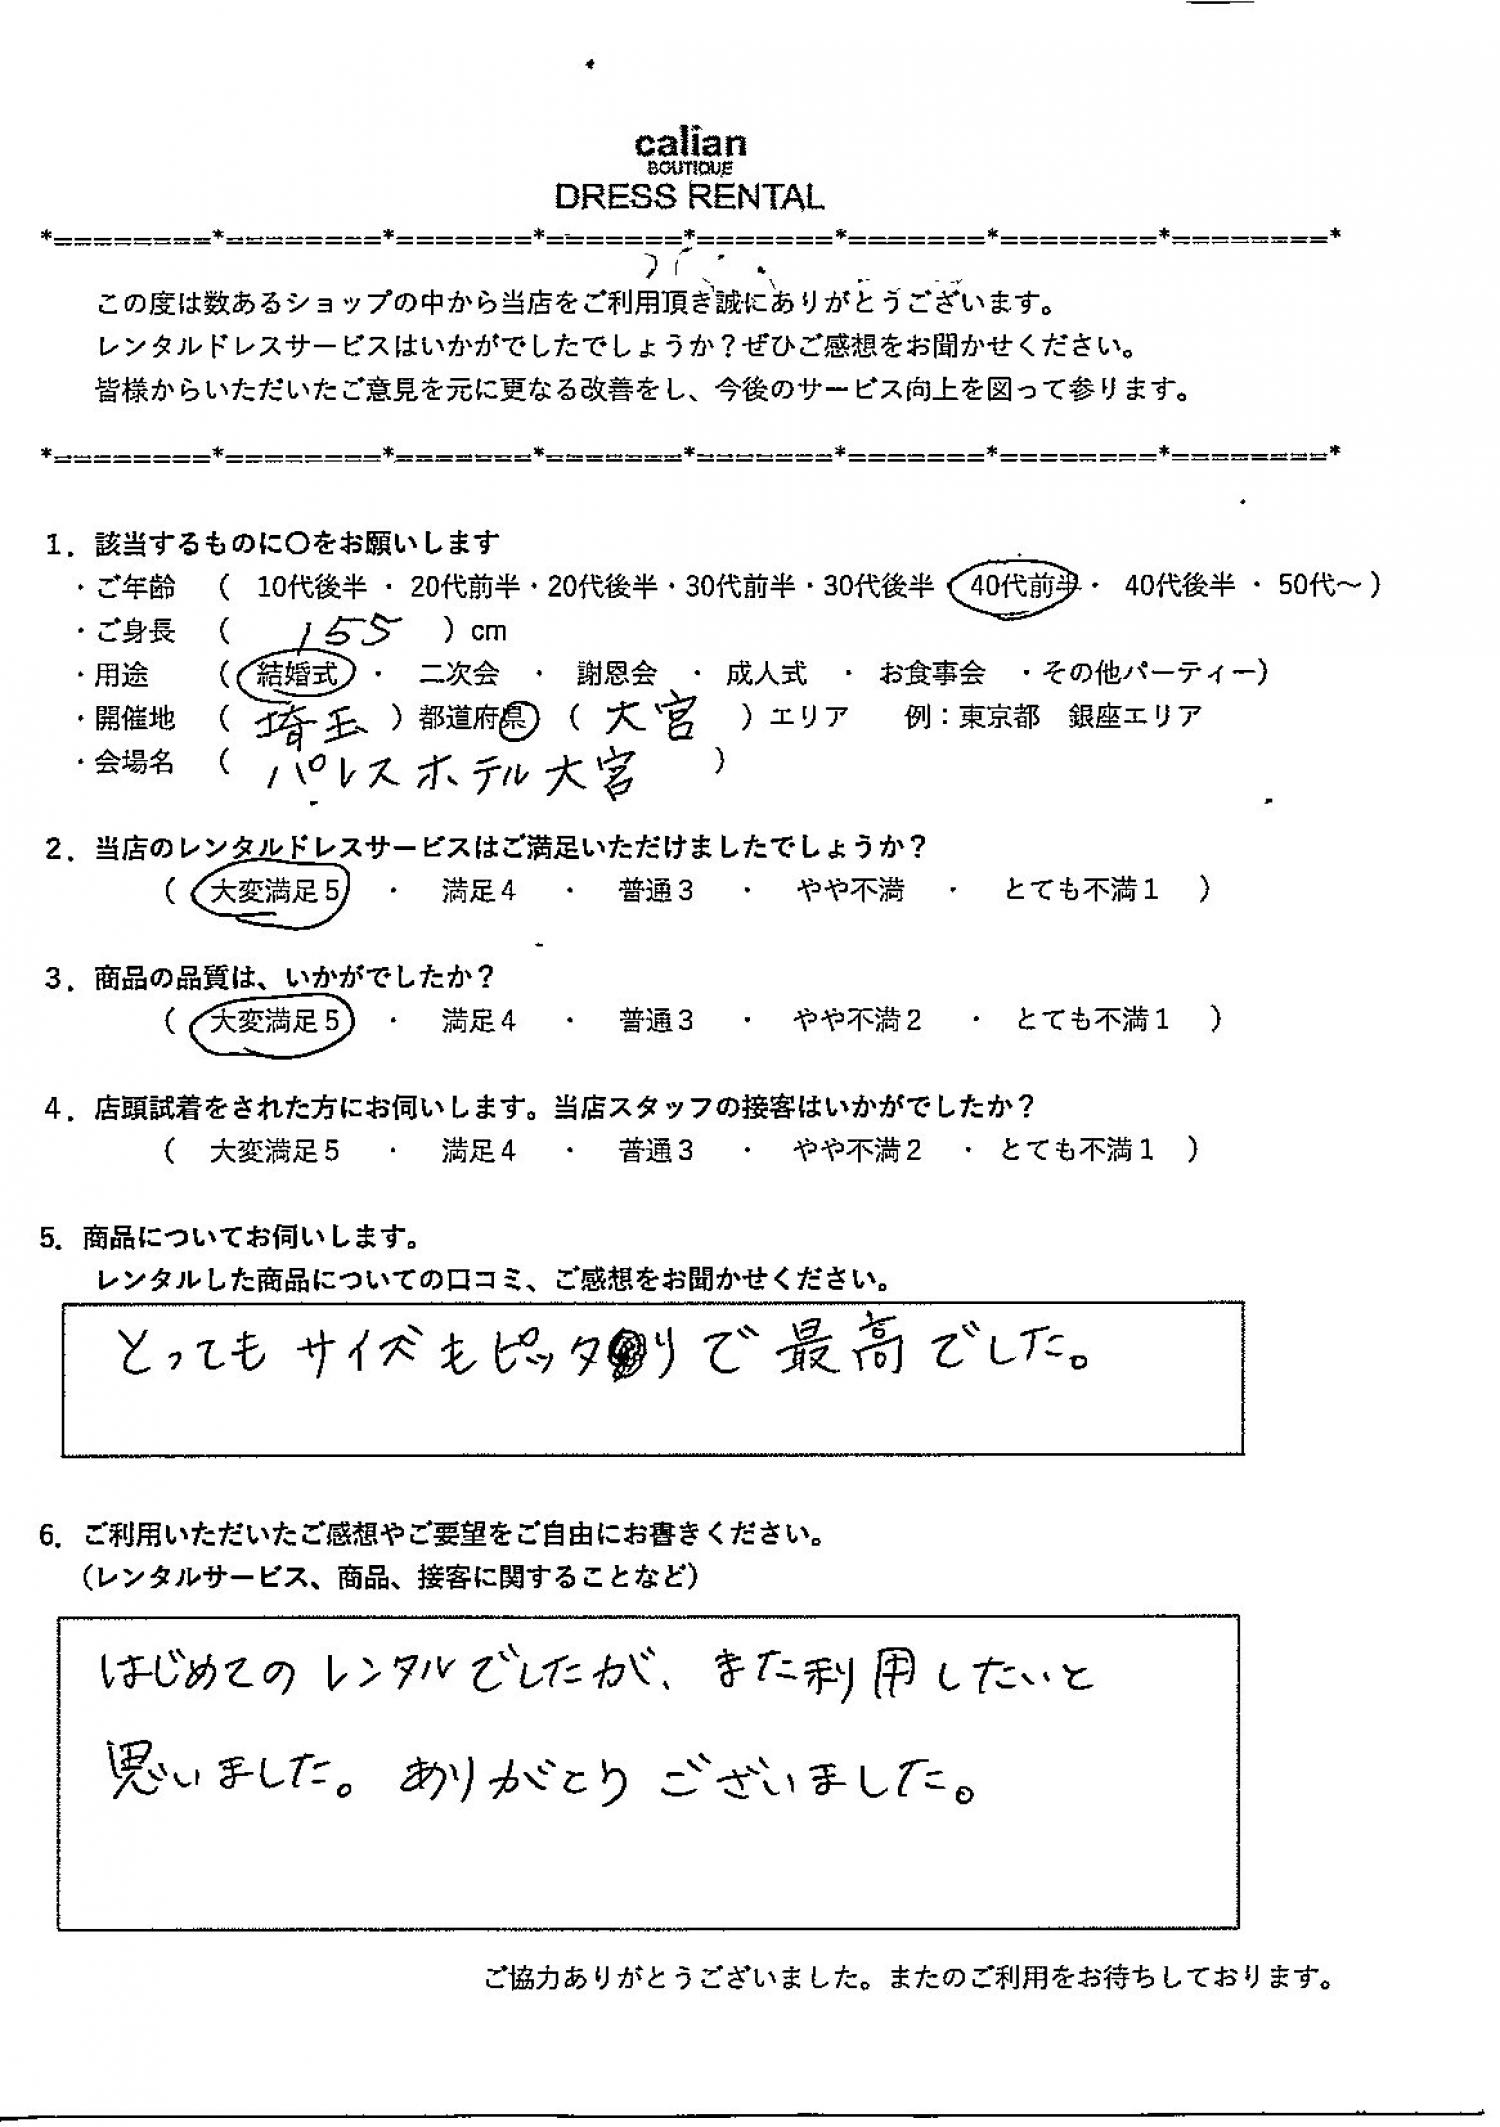 calian
BOUTIQUE
DRESS RENTAL
*========*========*=======*=======*=======*=======*========*========*
この度は数あるショップの中から当店をご利用頂き誠にありがとうございます。
レンタルドレスサービスはいかがでしたでしょうか？ぜひご感想をお聞かせください。
皆様からいただいたご意見を元に更なる改善をし、今後のサービス向上を図って参ります。
*========*========*=======*=======*=======*=======*========*========*
1．該当するものに〇をお願いします
・ご年齢 （ 10代後半 ・ 20代前半・20代後半・30代前半・30代後半・40代前半・ 40代後半 ・ 50代～）
・ご身長 （ 155 ）cm
・用途 （ 結婚式 ・ 二次会 ・ 謝恩会 ・ 成人式 ・ お食事会 ・その他パーティー）
・開催地 （ 埼玉 ）都道府県 （ 大宮 ）エリア 例：東京都 銀座エリア
・会場名 （ パレスホテル大宮 ）
2．当店のレンタルドレスサービスはご満足いただけましたでしょうか？
（ 大変満足5 ・ 満足4 ・ 普通3 ・ やや不満 ・ とても不満1 ）
3．商品の品質は、いかがでしたか？
（ 大変満足5 ・ 満足4 ・ 普通3 ・ やや不満2 ・ とても不満1 ）
4．店頭試着をされた方にお伺いします。当店スタッフの接客はいかがでしたか？
（ 大変満足5 ・ 満足4 ・ 普通3 ・ やや不満2 ・ とても不満1 ）
5．商品についてお伺いします。
レンタルした商品についての口コミ、ご感想をお聞かせください。
とってもサイズもピッタリで最高でした。
6．ご利用いただいたご感想やご要望をご自由にお書きください。
（レンタルサービス、商品、接客に関することなど）
はじめてのレンタルでしたが、また利用したいと
思いました。ありがとうございました。
ご協力ありがとうございました。またのご利用をお待ちしております。